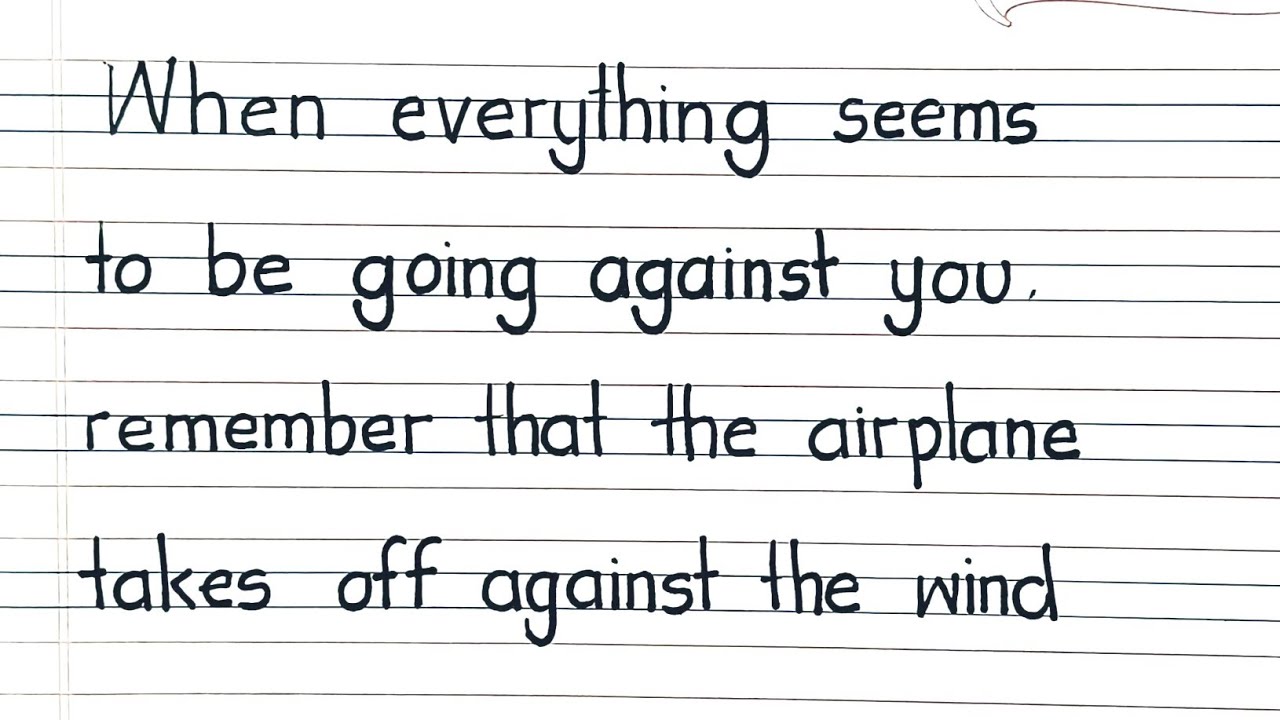 When everything seems
to be going against you.
remember that the airplane
takes off against the wind